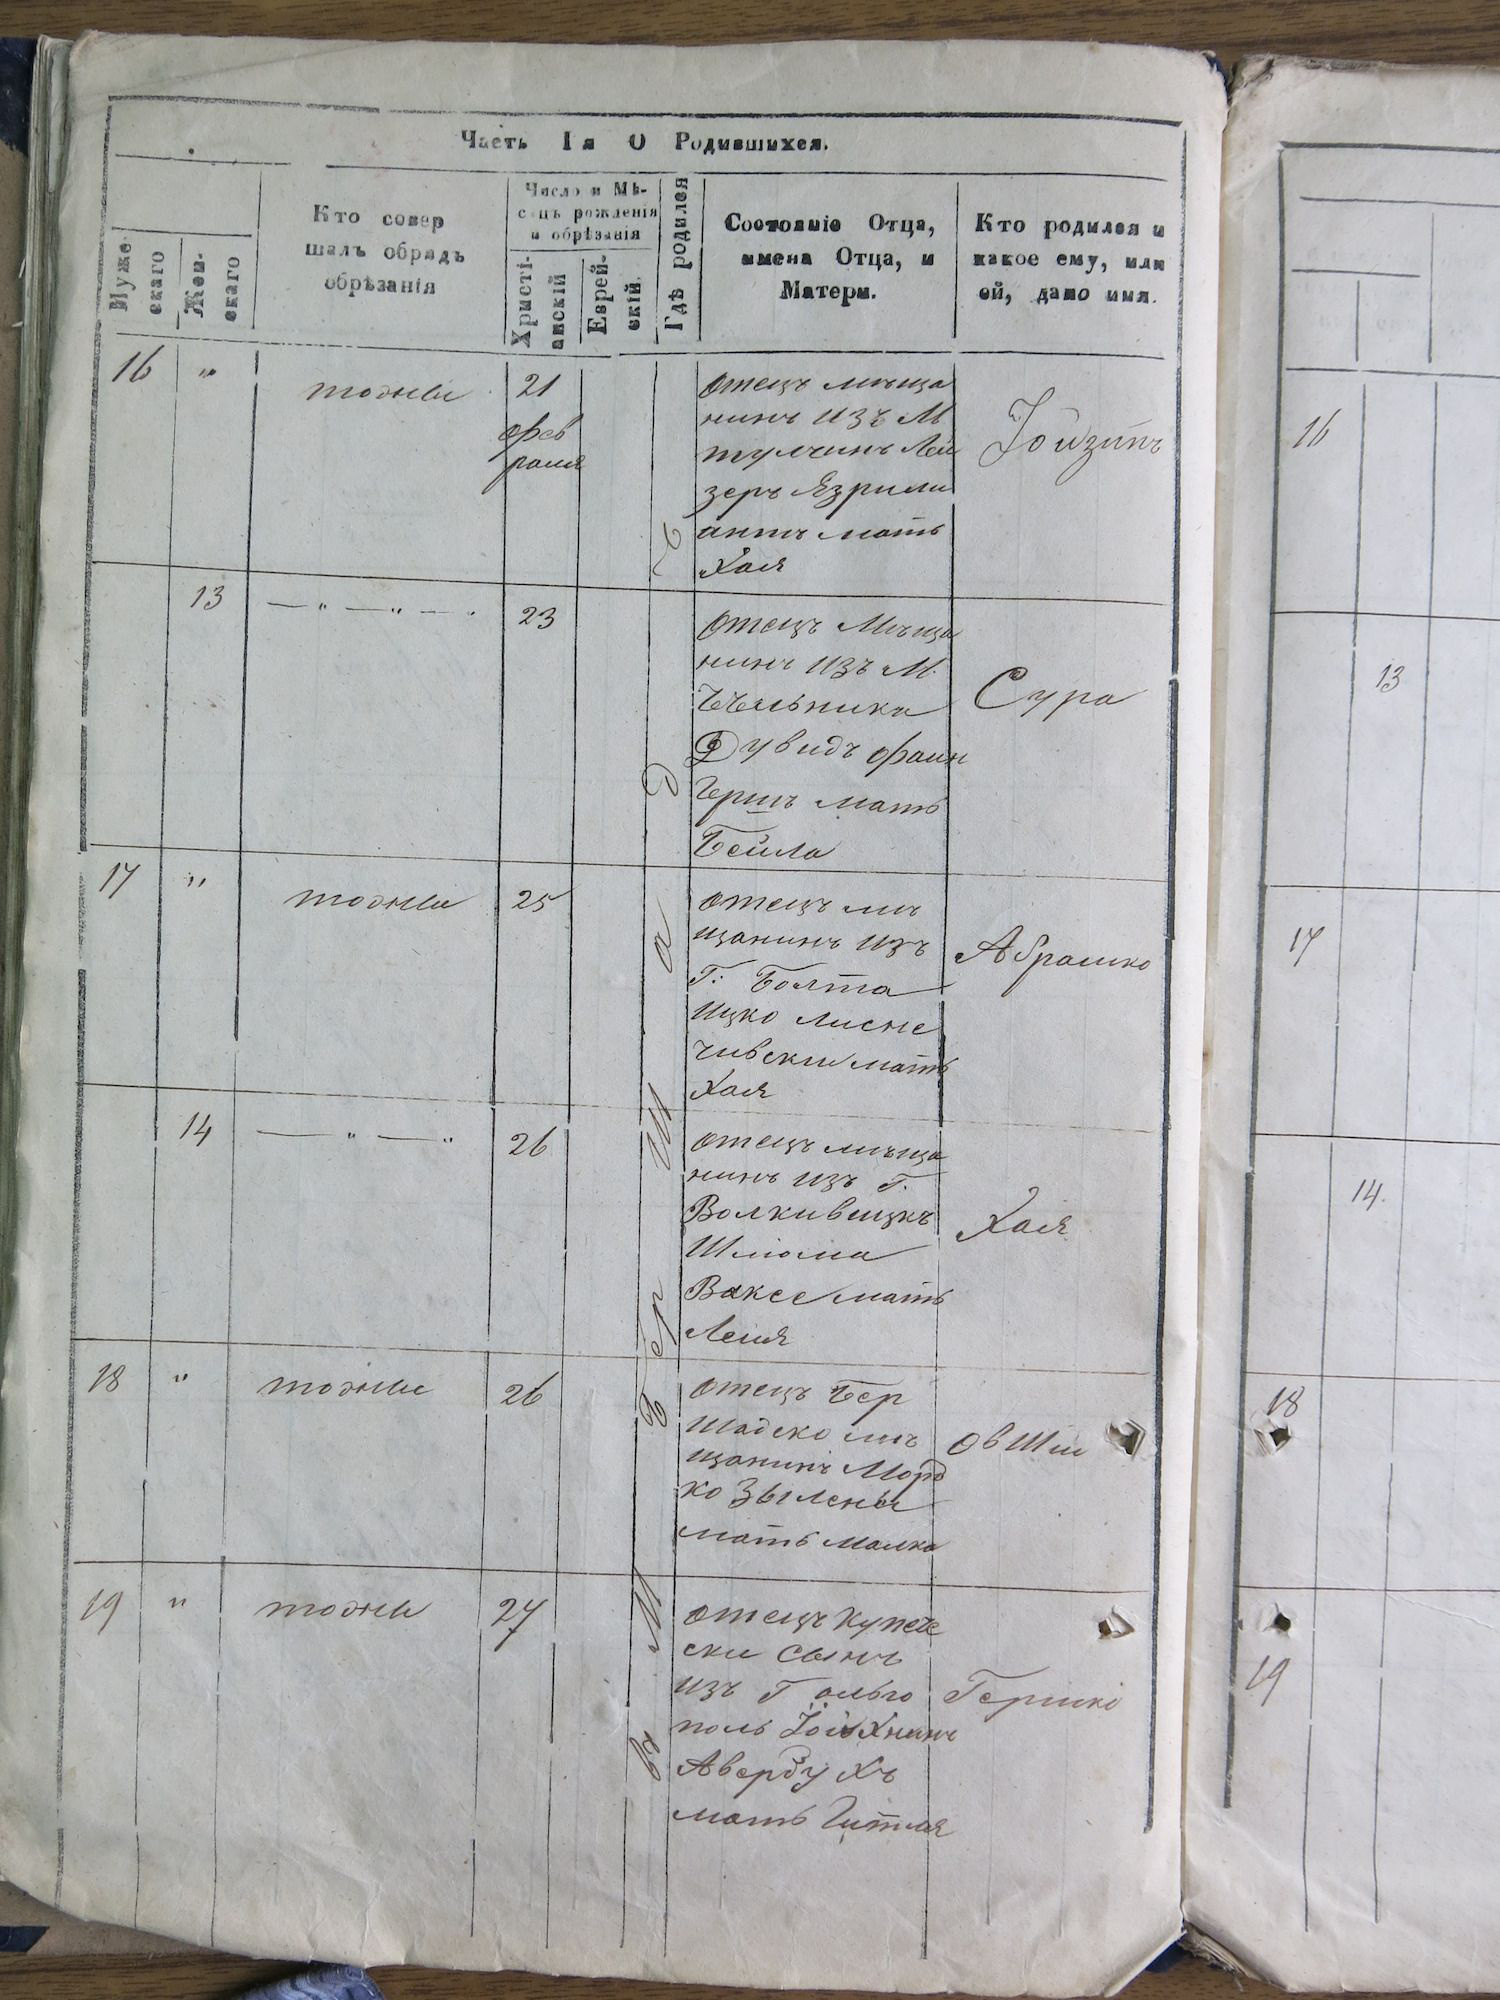 Часть Iя О Родившихся.
Муже
скаго
Жен-
скаго
Кто совер
шалъ обрядъ
обрѣзанія
Число и Мѣ-
сяцъ рожденія
и обрѣзанія
Христі-
анскій
Еврей-
скій.
Гдѣ родился
Состояніе Отца,
имена Отца, и
Матери.
Кто родился и
какое ему, или
ей, дано имя.
Въ М Бершадѣ
16 " тодже 21
фев
раля
отецъ мѣща
нинъ изъ М
тулчинъ Лей
зеръ Язрили
антъ мать
Хая
Іойзипъ
13 — " — " — " 23
отецъ Мѣща
нинъ изъ М.
Чечельника
Дувидъ фаин
Гершъ мать
Бейла
Сура
17 " тодже 25
отецъ мѣ
щанинъ изъ
Г: Болта
Ицко Лисне
чивски мать
Хая
Абрашко
14 — " — " 26
отецъ мѣща
нинъ изъ Г.
Волкивицкъ
Шлиома
Ваксе мать
Леия
Хая
18 " тодже 26
отецъ Бер
шадско мѣ
щанинъ Морд
ко Зылены
мать Малка
овши
19 " тодже 27
отецъ купече
ски сынъ
изъ Г ольго
поль
Авербухъ
мать Гитля
Гершко
16
13
17
14.
18
19